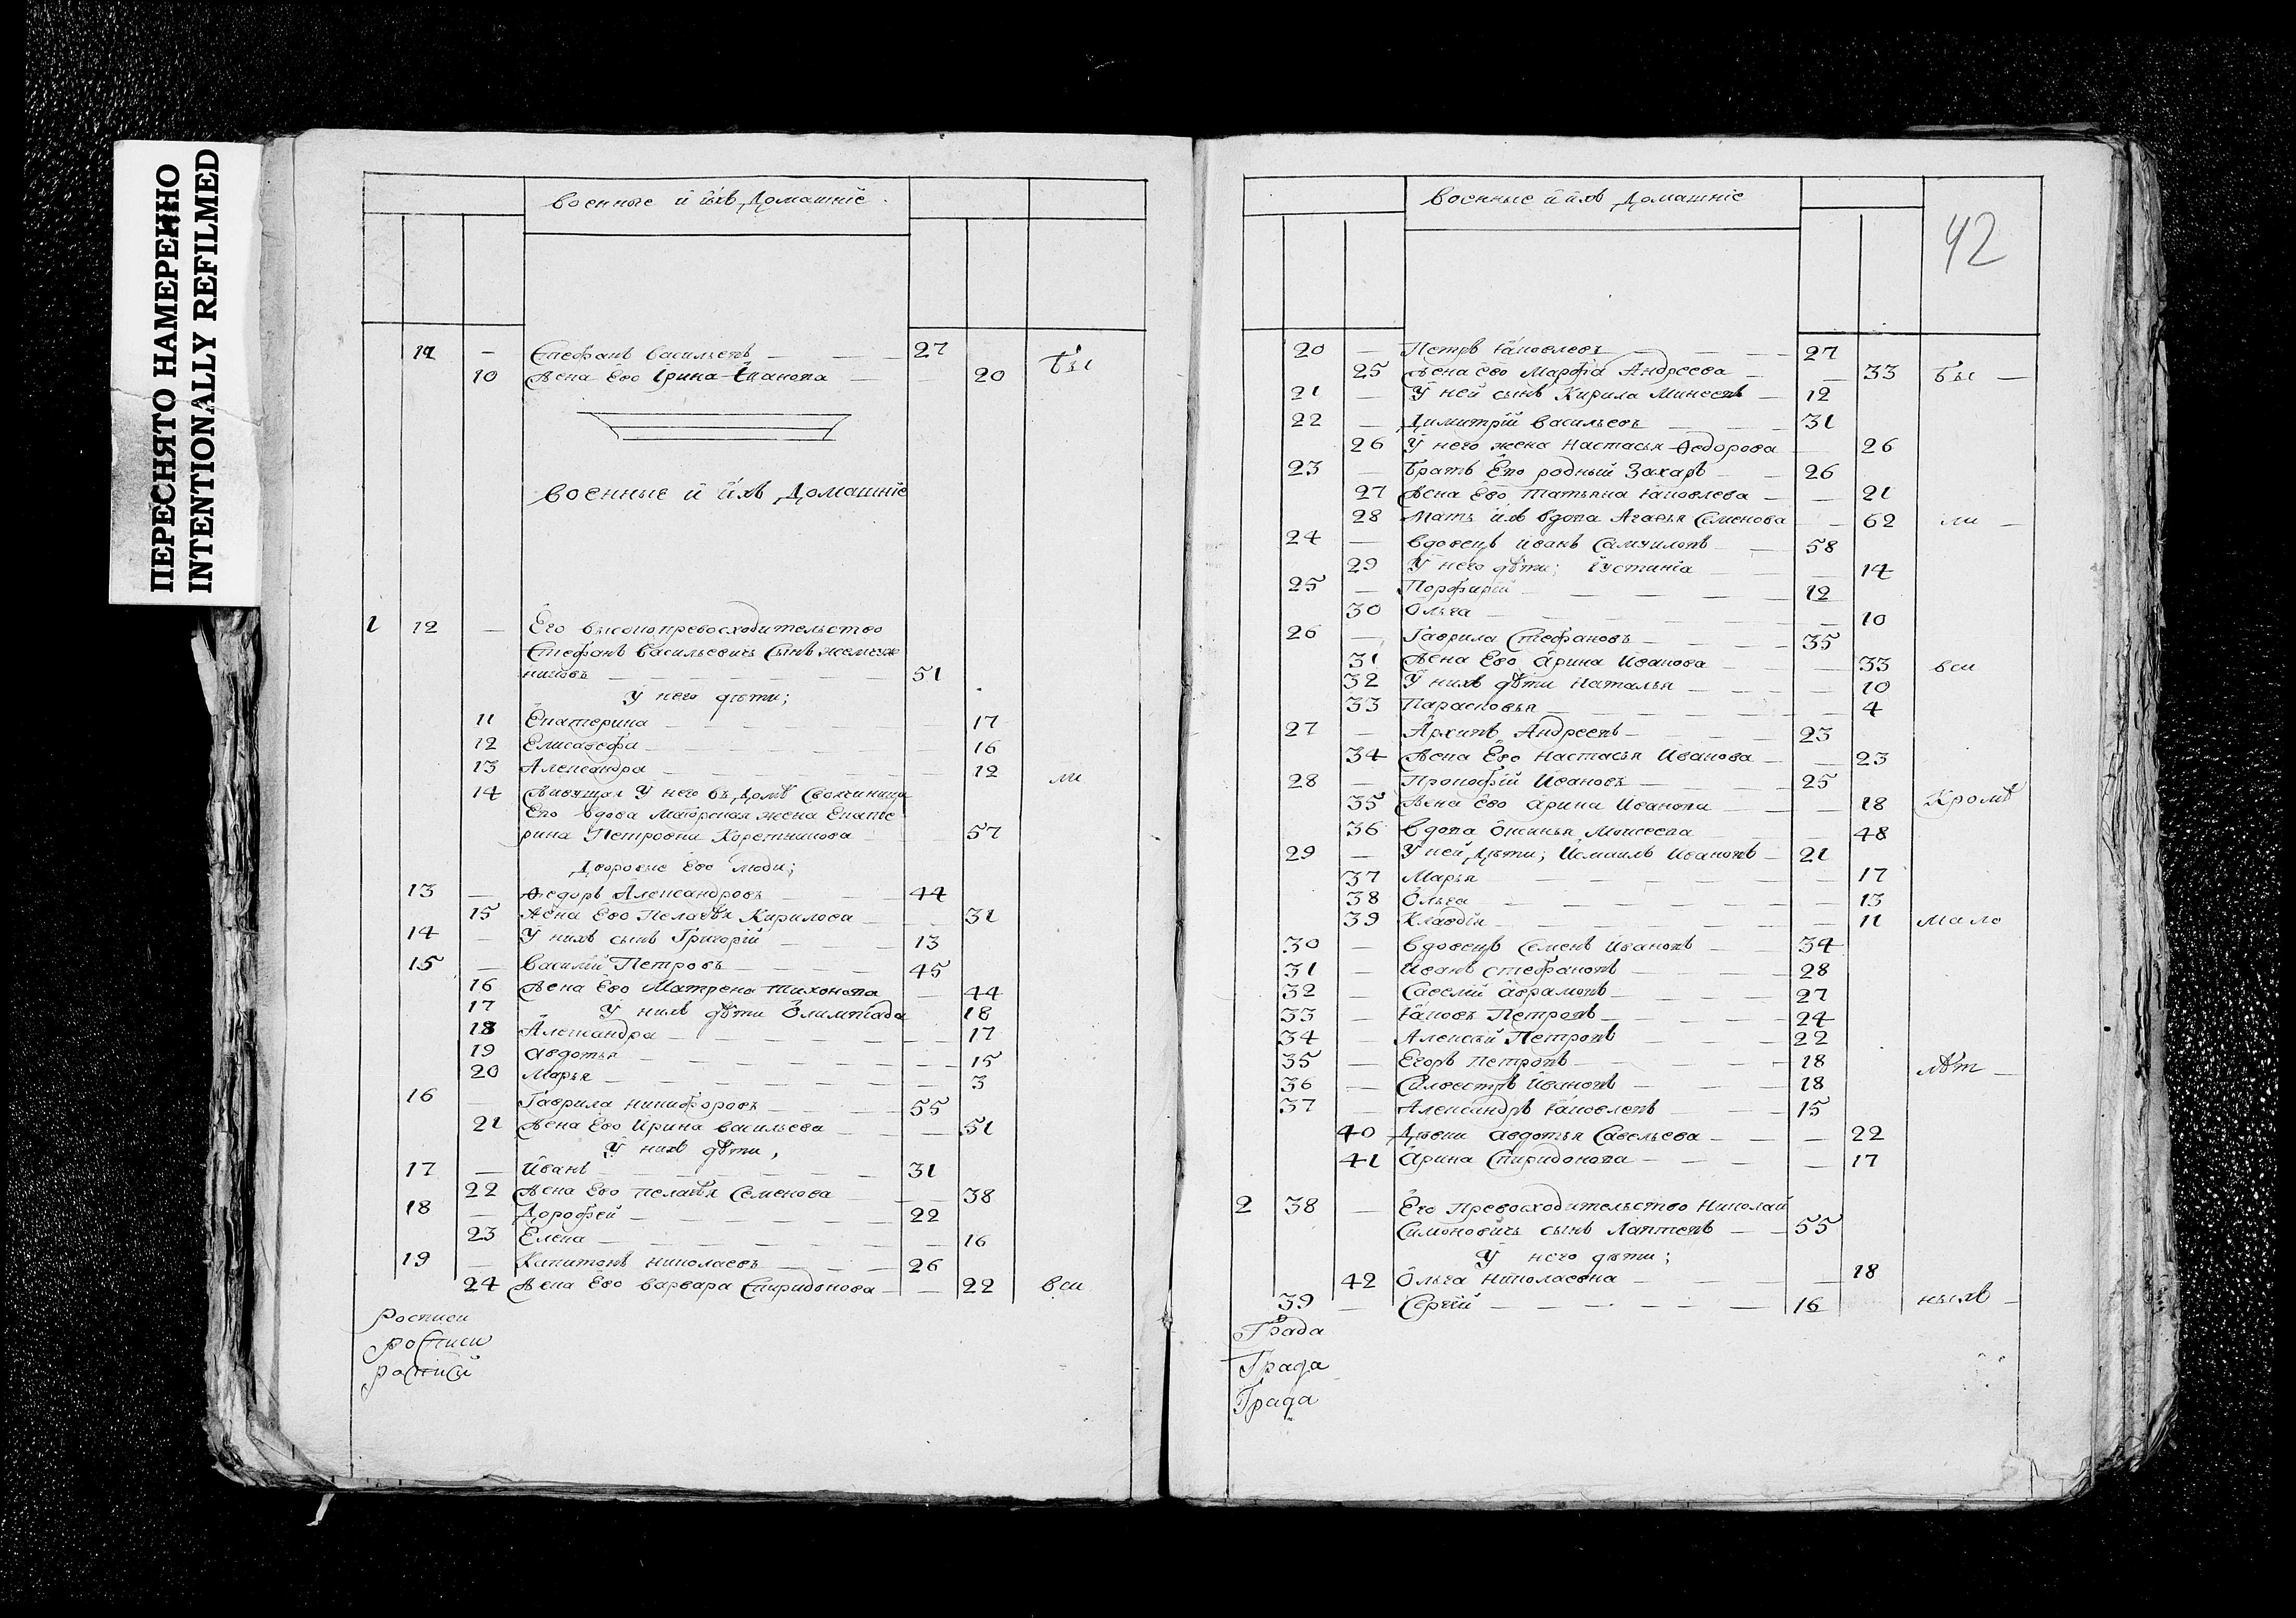 ПЕРЕСНЯТО НАМЕРЕННО
INTENTIONALLY REFILMED
военные и ихъ домашніе
11 — Стефанъ Васильевъ — 27
10 Жена Его Ірина Иванова — 20 бы
военные и ихъ домашніе
1 12 — Его высокопревосходительство
Стефанъ Васильевичь Сынъ Жемчуж
никовъ — 51
У него дѣти;
11 Екатерина — 17
12 Елисавефа — 16
13 Александра — 12 ли
14 Живущая У него въ домѣ Своячиница
Его вдова Маіорская жена Екате
рина Петровна 57
Дворовые Его люди;
13 — Ѳедоръ Александровъ 44
15 Жена Его Пелагѣя Кирилова — 31
14 — У нихъ сынъ Григорій — 13
15 — Василій Петровъ — 45
16 Жена Его Матрена Тихонова — 44
17 У нихъ дѣти Олимпіада 18
18 Александра — 17
19 Авдотья — 15
20 Марья — 3
16 — Гаврила Никифоровъ — 55
21 Жена Его Ирина Васильева — 51
У нихъ дѣти,
17 — Иванъ — 31
22 Жена Его Пелагѣя Семенова — 38
18 — Дорофей — 22
23 Елена — 16
19 — Капитонъ Николаевъ — 26
24 Жена Его Варвара Спиридонова — 22 вси
Росписи
росписи
росписи
военные и ихъ домашніе
42
20 — Петръ Яковлевъ — 27
25 Жена Его Марфа Андреева — 33 бы —
21 — У ней сынъ Кирила Минеевъ — 12
22 — Димитрій Васильевъ — 31
26 У него жена Настасья Ѳедорова 26
23 — Братъ Его родный Захаръ — 26
27 Жена Его Татьяна Яковлева — 21
28 Мать ихъ вдова Агафья Семенова — 62 ли —
24 — вдовецъ Иванъ Самуиловъ — 58
29 У него дѣти; Іустинія — 14
25 — Порфирій — 12
30 Ольга — 10
26 — Гаврила Стефановъ — 35
31 Жена Его Арина Иванова — 33 вси
32 У нихъ дѣти Наталья — 10
33 Парасковья — 4
27 — Архипъ Андреевъ — 23
34 Жена Его Настасья Иванова — 23
28 — Прокофій Ивановъ — 25
35 Жена Его Арина Иванова — 18 Кромѣ
36 вдова Аксинья Моисеева — 48
29 — У ней дѣти; Исмаилъ Ивановъ — 21
37 Марья — 17
38 Ольга — 13
39 Клавдія — 11 мало
30 — вдовецъ Семенъ Ивановъ — 34
31 — Иванъ Стефановъ — 28
32 — Савелій Аврамовъ — 27
33 — Яковъ Петровъ — 24
34 — Алексѣй Петровъ — 22
35 — Егоръ Петровъ — 18 лѣт —
36 — Силвестръ Ивановъ — 18
37 — Александръ Яковлевъ — 15
40 Дѣвки Авдотья Савельева — 22
41 Арина Спиридонова — 17
2 38 — Его Превосходительство Николай
Симоновичь сынъ Лаптевъ — 55
У него дѣти;
42 Ольга Николаевна — 18
39 — Сергій — 16 ныхъ —
Града
Града
Града